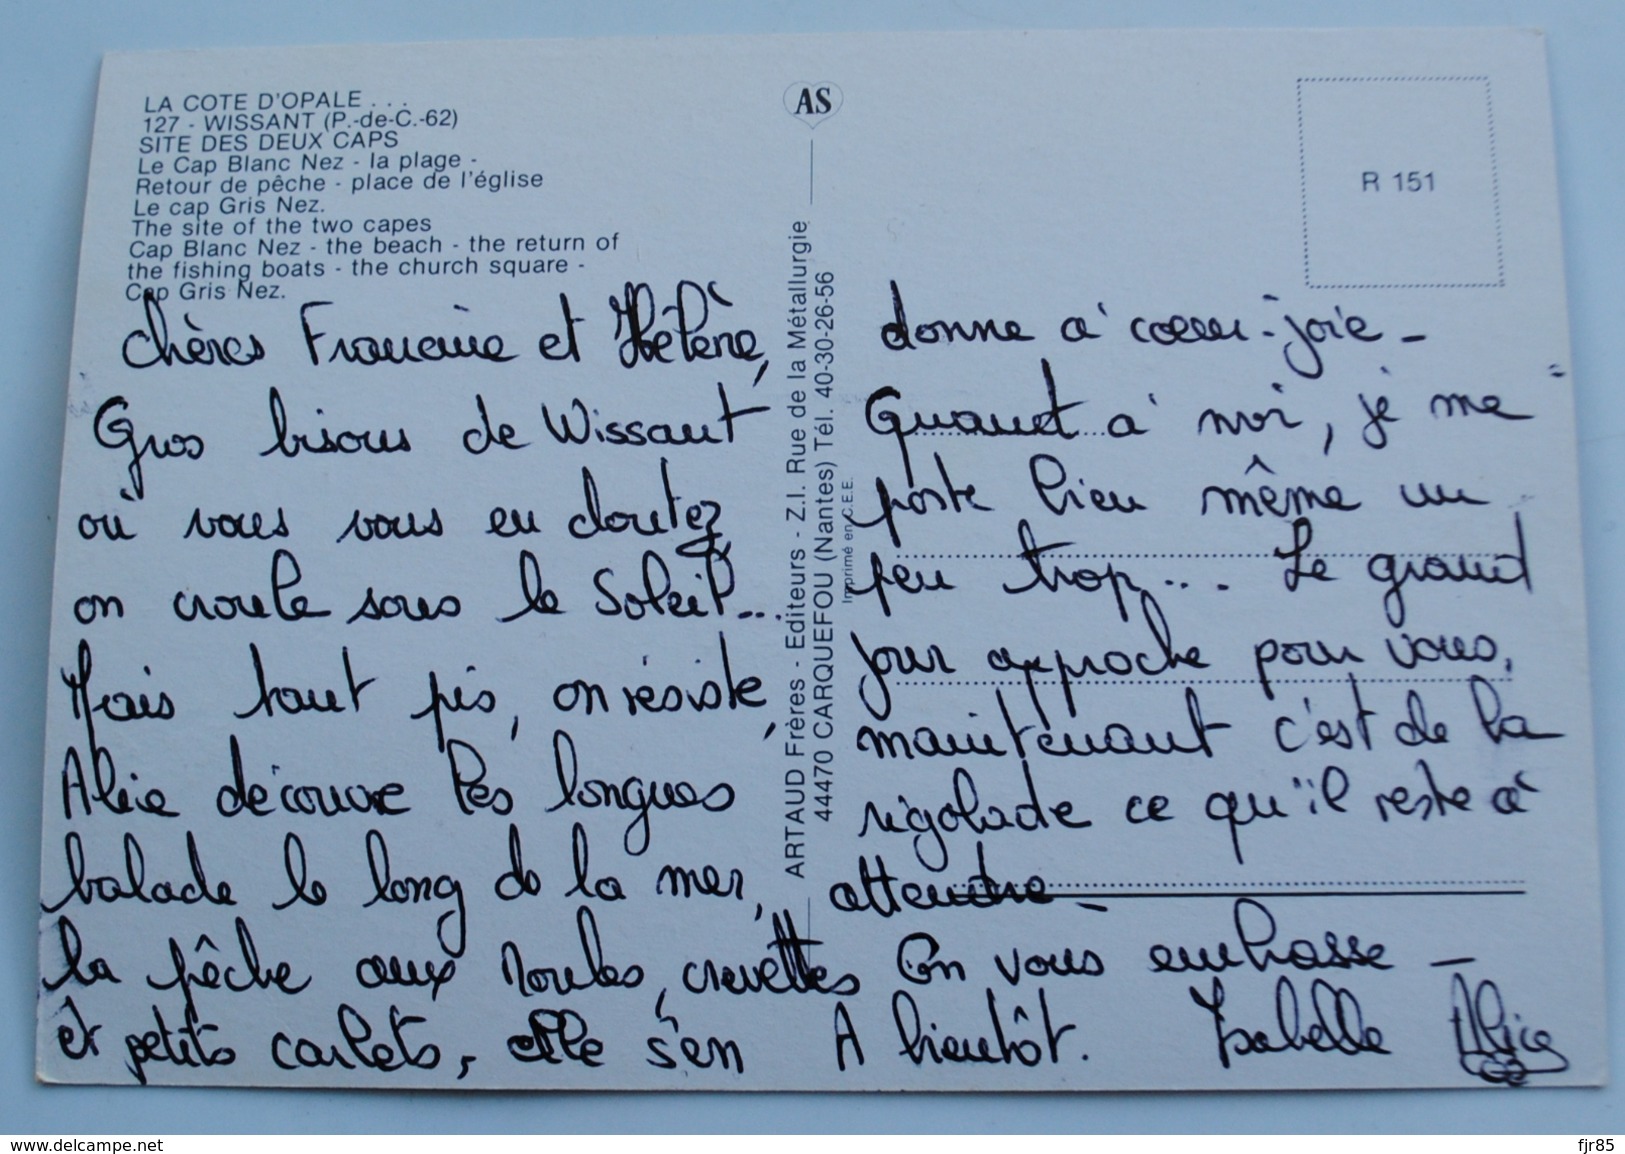 LA COTE D'OPALE . . .
127 - WISSANT (P.-de-C.-62)
SITE DES DEUX CAPS
Le Cap Blanc Nez - la plage -
Retour de pêche - place de l'église
Le cap Gris Nez.
The site of the two capes
Cap Blanc Nez - the beach - the return of
the fishing boats - the church square -
Cap Gris Nez.
AS
R 151
ARTAUD Frères - Editeurs - Z.I. Rue de la Métallurgie
44470 CARQUEFOU (Nantes) Tél. 40-30-26-56
Imprimé en C.E.E.
chères Francine et Hélène,
Gros bisous de Wissant
où vous vous en doutez,
on croule sous le Soleil...
Mais tant pis, on résiste,
Alice découvre les longues
balade le long de la mer,
la pêche aux moules, crevettes
et petits carlets, elle s'en
donne à coeur-joie -
Quant à moi, je me
poste bien même un
peu trop... Le grand
jour approche pour vous,
maintenant c'est de la
rigolade ce qu'il reste à
attendre -
On vous embrasse -
A bientôt. Isabelle Alice
www.delcampe.net
fjr85